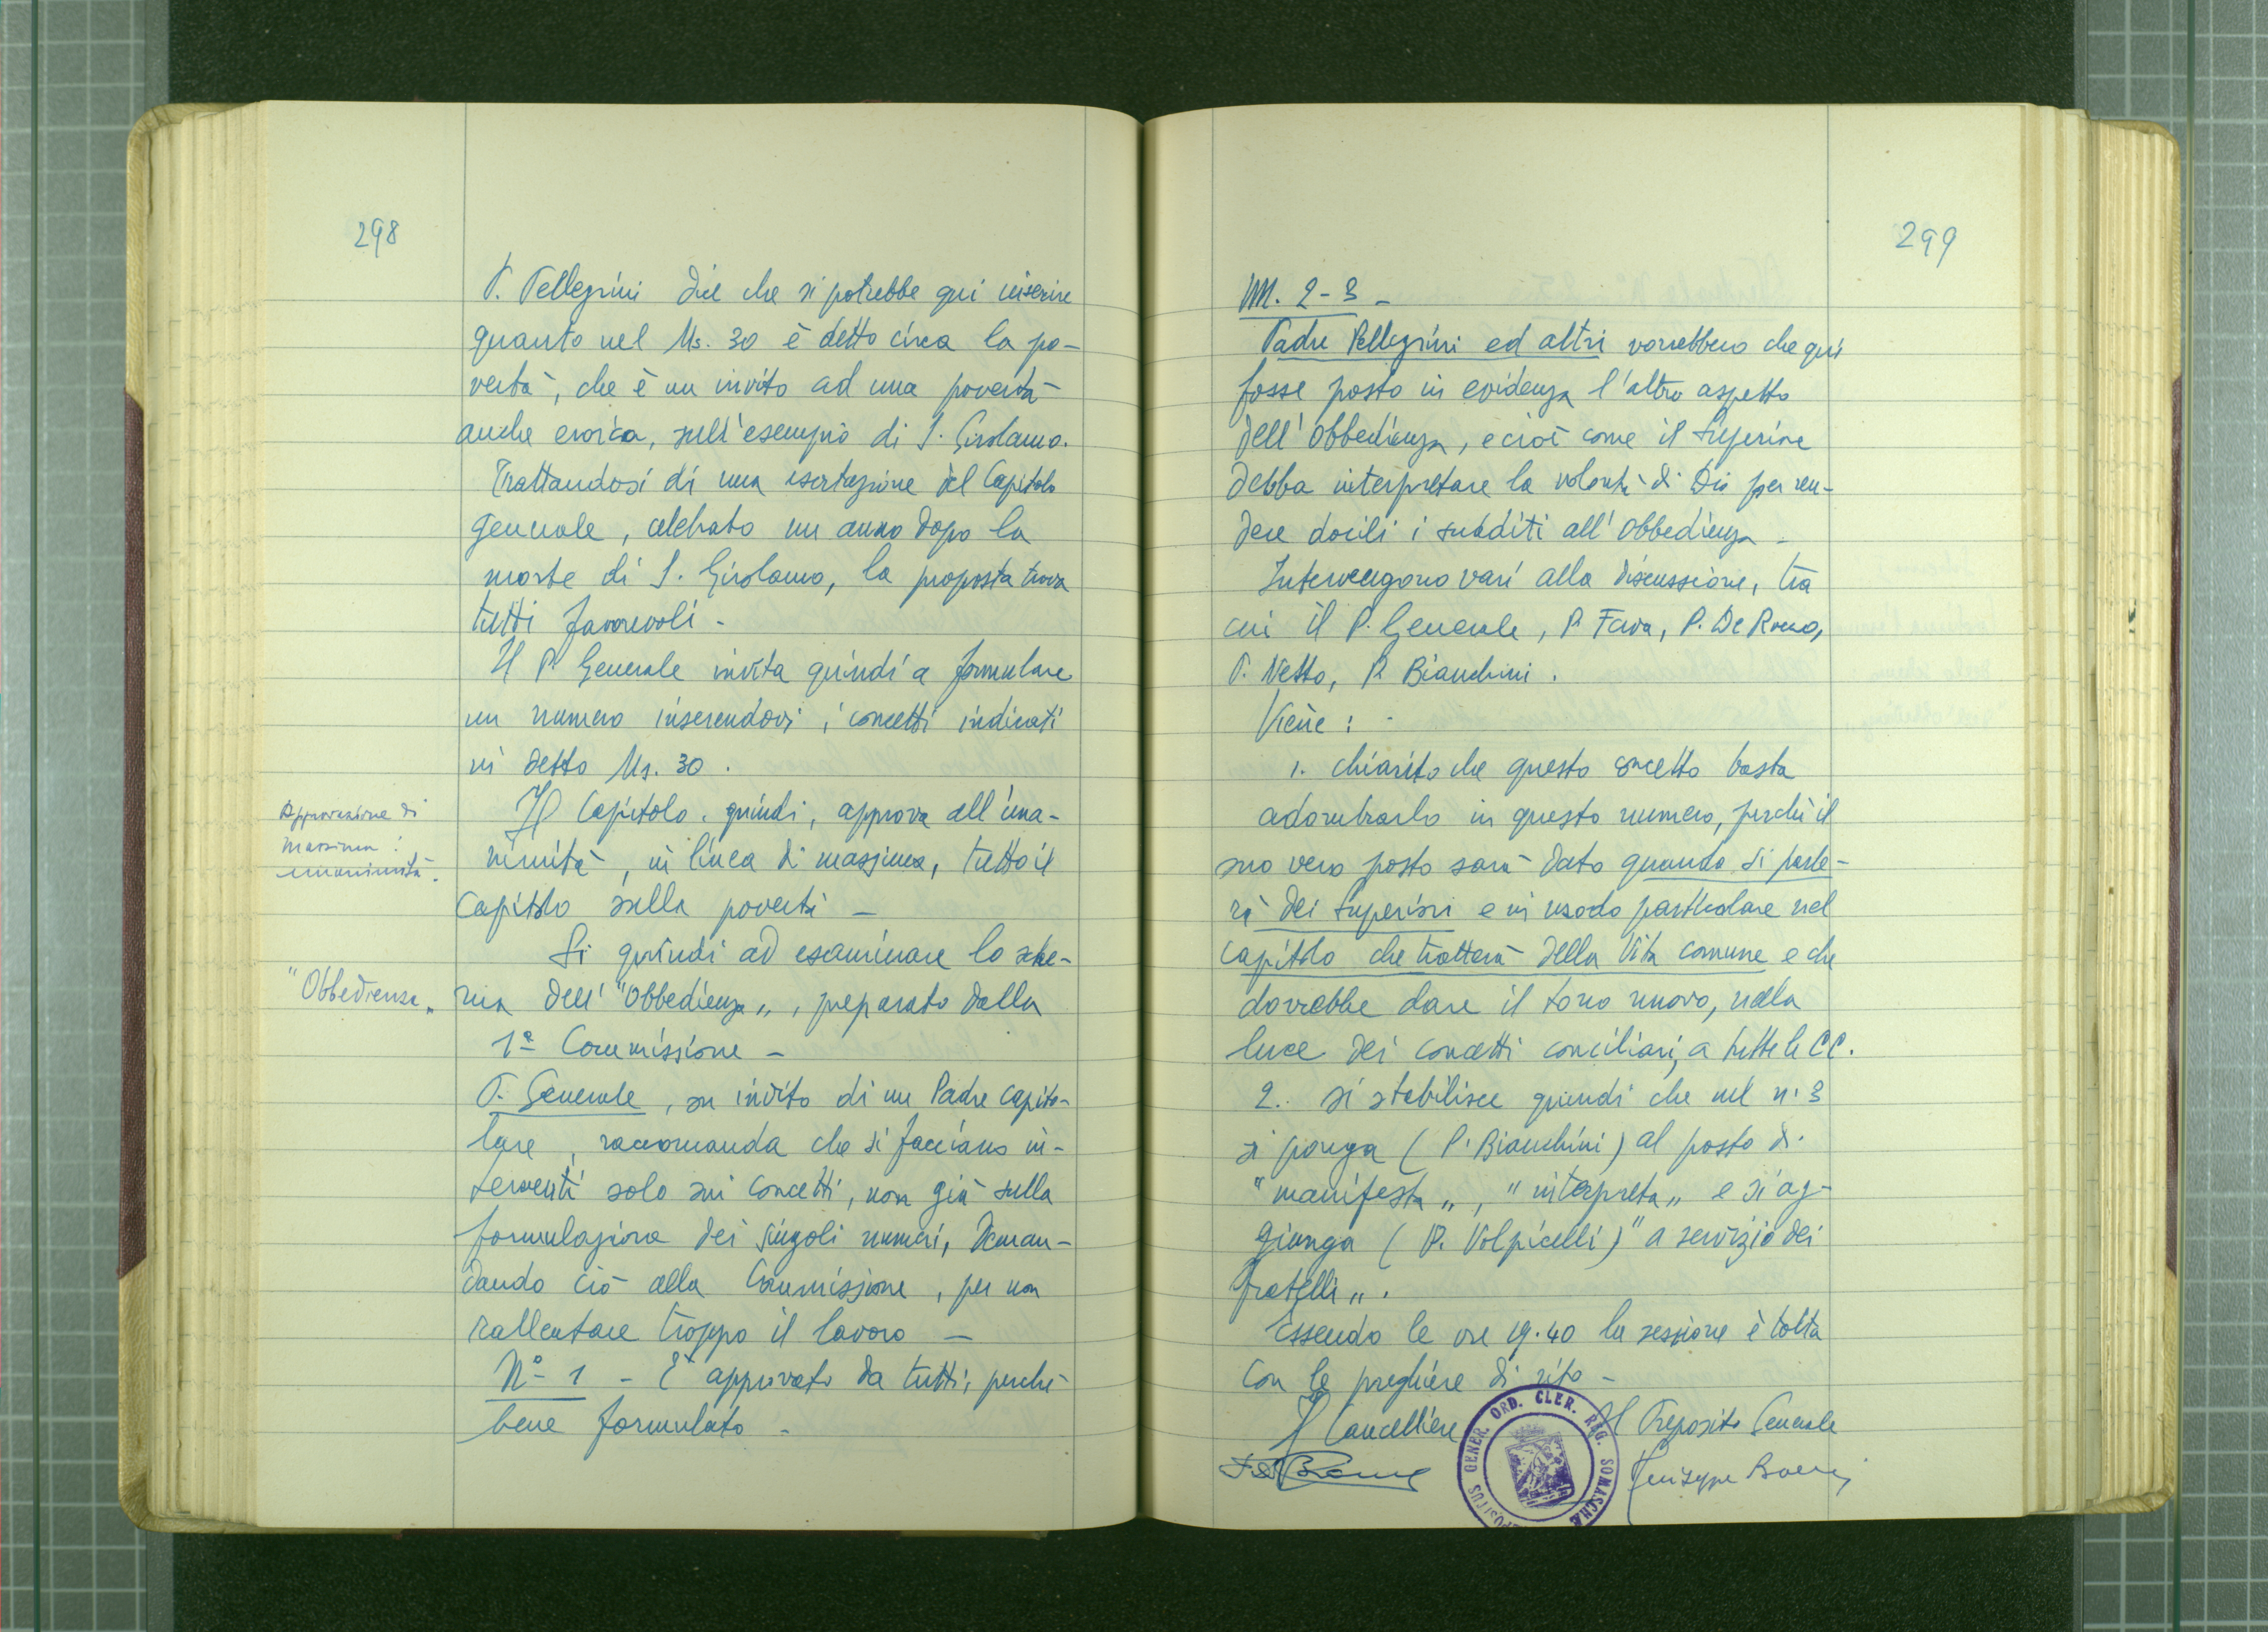 298
P. Pellegrini dice che si potrebbe qui inserire
quanto nel Ms. 30 è detto circa la po-
vertà, che è un invito ad una povertà
anche eroica, sull'esempio di S. Girolamo.
Trattandosi di una esortazione del Capitolo
generale, celebrato un anno dopo la
morte di S. Girolamo, la proposta trova
tutti favorevoli -
Il P. Generale invita quindi a formulare
un numero inserendovi i concetti indicati
in detto Ms. 30.
Approvazione di
massima:
unanimità.
Il Capitolo, quindi, approva all'una-
nimità, in linea di massima, tutto il
capitolo sulla povertà -
"Obbedienza„
Si quindi ad esaminare lo sche-
ma dell'"Obbedienza„, preparato dalla
1ª Commissione -
P. Generale, su invito di un Padre capito-
lare, raccomanda che si facciano in-
terventi solo sui concetti, non già sulla
formulazione dei singoli numeri, deman-
dando ciò alla Commissione, per non
rallentare troppo il lavoro -
Nº 1 - È approvato da tutti, perché
bene formulato -
299
NN. 2-3 -
Padre Pellegrini ed altri vorrebbero che qui
fosse posto in evidenza l'altro aspetto
dell'obbedienza, e cioè come il Superiore
debba interpretare la volontà di Dio per ren-
dere docili i sudditi all'obbedienza -
Intervengono vari alla discussione, tra
cui il P. Generale, P. Fava, P. De Rocco,
P. Netto, P. Bianchini.
Viene:
1. chiarito che questo concetto basta
adombrarlo in questo numero, perché il
suo vero posto sarà dato quando si parle-
rà dei superiori e in modo particolare nel
capitolo che tratterà della Vita comune e che
dovrebbe dare il tono nuovo, nella
luce dei concetti conciliari, a tutte le CC.
2. si stabilisce quindi che nel n. 3
si ponga (P. Bianchini) al posto di
"manifesta„, "interpreta„ e si ag-
giunga (P. Volpicelli) "a servizio dei
fratelli„.
Essendo le ore 19.40 la sessione è tolta
con le preghiere di rito -
Il Cancelliere
Il Preposito Generale
Giuseppe
GENER. ORD. CLER. REG. SOMASCHÆ